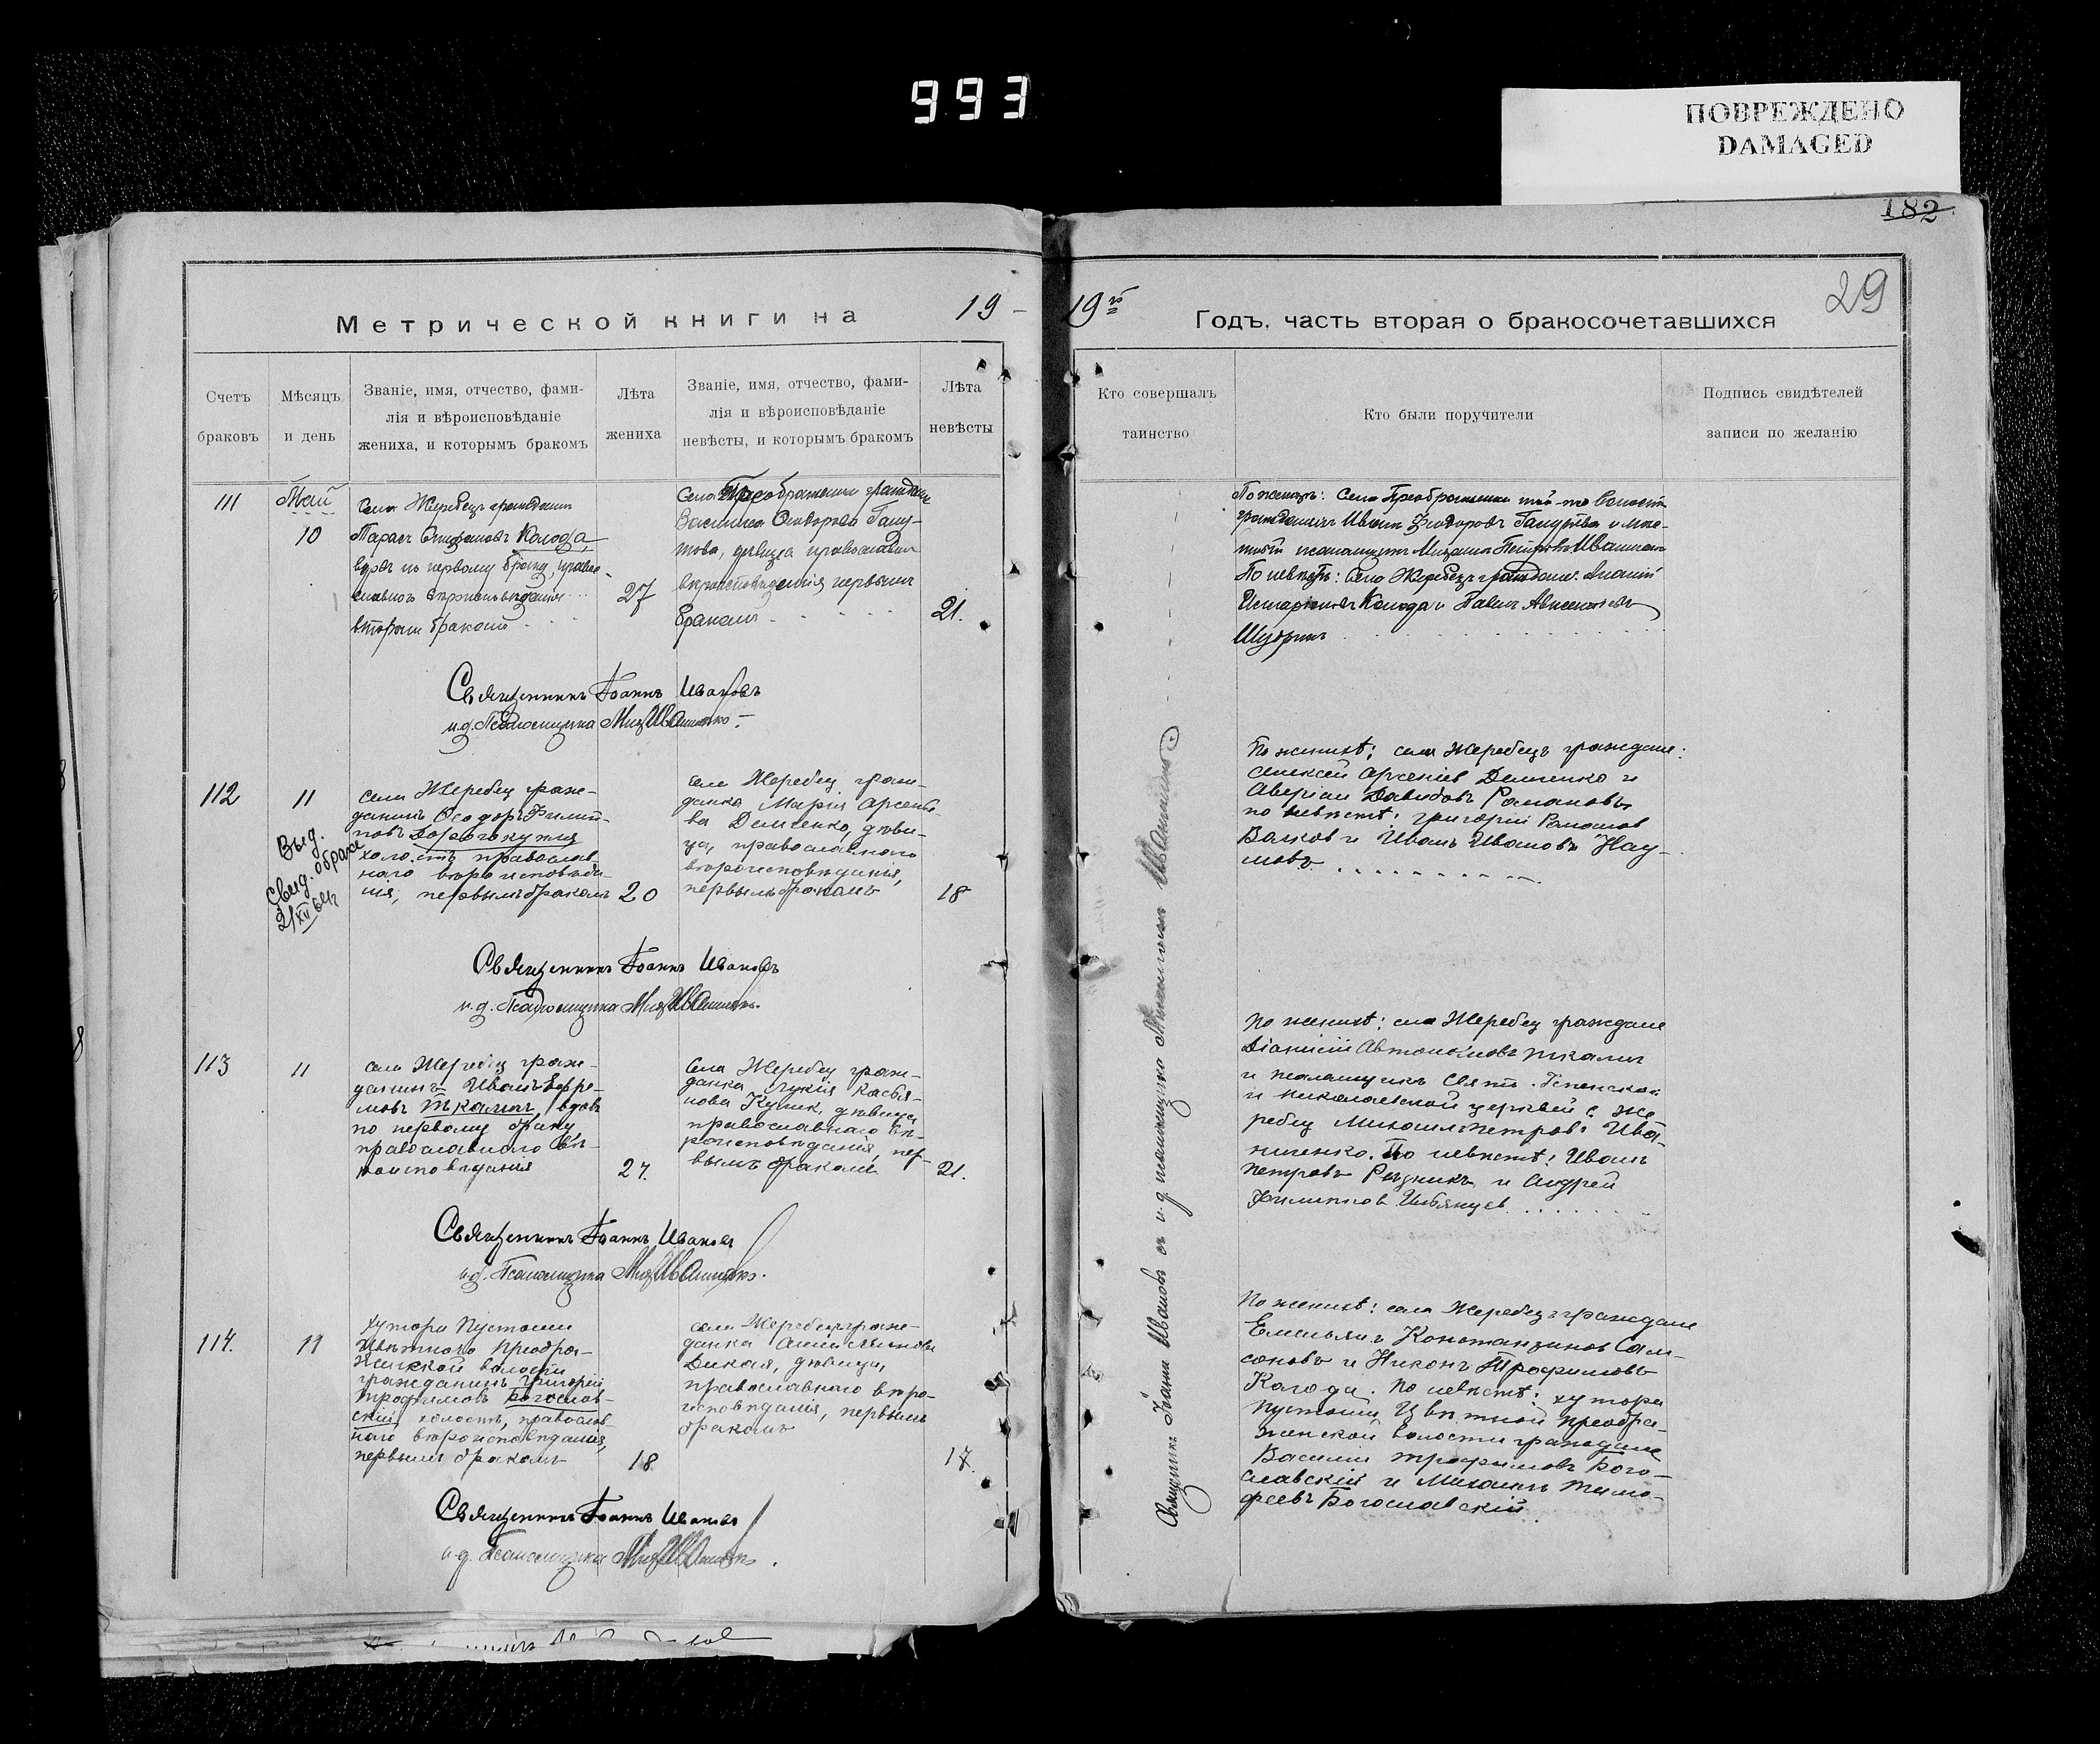 993
ПОВРЕЖДЕНО
DAMAGED
182
29
Метрической книги на 19 -
19 г̄ Годъ, часть вторая о бракосочетавшихся
Счетъ браковъ
Мѣсяцъ и день
Званіе, имя, отчество, фами-
лія и вѣроисповѣданіе
жениха, и которымъ бракомъ
Лѣта жениха
Званіе, имя, отчество, фами-
лія и вѣроисповѣданіе
невѣсты, и которымъ бракомъ
Лѣта невѣсты
Кто совершалъ таинство
Кто были поручители
Подпись свидѣтелей
записи по желанію
111
Май
10
Села Жеребец гражданин
Тарас Колода,
вдов по первому браку, правос-
лавного
вторым браком
27
Села Преображенки
Василиса Феодорова
девица православн
вероисповедания первым
браком
21.
По женихѣ: Села Преображенки той-же волости
гражданин Иван Феодоров
псаломщик Михаил Петров Иващенко
По невесте: Села Жеребец граждане:
Колода и Павел Авксентьев
Священникъ Іоаннъ Ивановъ
и.д. Псаломщика Мих Иващенко
112
11
Выд.
Свид. о браке
21/XII
села Жеребец граж-
данинъ Феодор Филип-
повъ Дорогокупля
холостъ православ-
наго вероисповеда-
нія, первымъ бракомъ
20
села Жеребец граж-
данка Марія Арсенье-
ва Демченко, деви-
ца, православного
вероисповеданья,
первымъ бракомъ
18
По женихѣ: села Жеребецъ граждане:
Алексей Арсеніев Демченко и
Аверіан Давидовъ Романовъ,
по невестѣ: Григорій Романов
Волков и Иванъ Ивановъ Нау-
мовъ
Священникъ Іоаннъ Ивановъ
и.д. Псаломщика Мих Иващенко.
113
11
села Жеребец граж-
данинъ Иванъ Ефре-
мовъ Ткалич, вдовъ
по первому браку
православного ве-
роисповедания
27.
Села Жеребец граж-
данка Лукія Касья-
нова Кулик, девица,
православнаго ве-
роисповедания, пер-
вымъ бракомъ
21.
По женихѣ: села Жеребец граждане
Діонисій Автономовъ Ткалич
и псаломщикъ Свято Успенской
и Николаевской церквей с. Же
ребец Михаил Петровъ Ива-
щенко. По невестѣ: Иванъ
Петровъ Резник и Андрей
Филиппов
Священникъ Іоаннъ Ивановъ
и.д. Псаломщика Мих Иващенко.
114.
11
хутора Пустоши
Цветного Преобра-
женской волости
гражданинъ Григорій
Трофимовъ Богослов-
скій, холостъ, православ-
наго вероисповедания,
первымъ бракомъ
18.
села Жеребец граж-
данка
Дикая, девица,
православнаго веро-
исповедания, первымъ
бракомъ
17.
По женихѣ: села Жеребец граждане
Емельянъ Константинов Сам-
соновъ и Никонъ Трофимовъ
Колода. По невестѣ: хутора
Пустоши Цветной Преобра-
женской волости граждане
Василий Трофимовъ Бого-
славскій и Михаилъ Тимо-
феевъ Богославскій.
Священникъ Іоаннъ Ивановъ
и.д. Псаломщика Мих Иващенко.
Священникъ Іоаннъ Ивановъ съ и.д. псаломщика Михаиломъ Иващенко